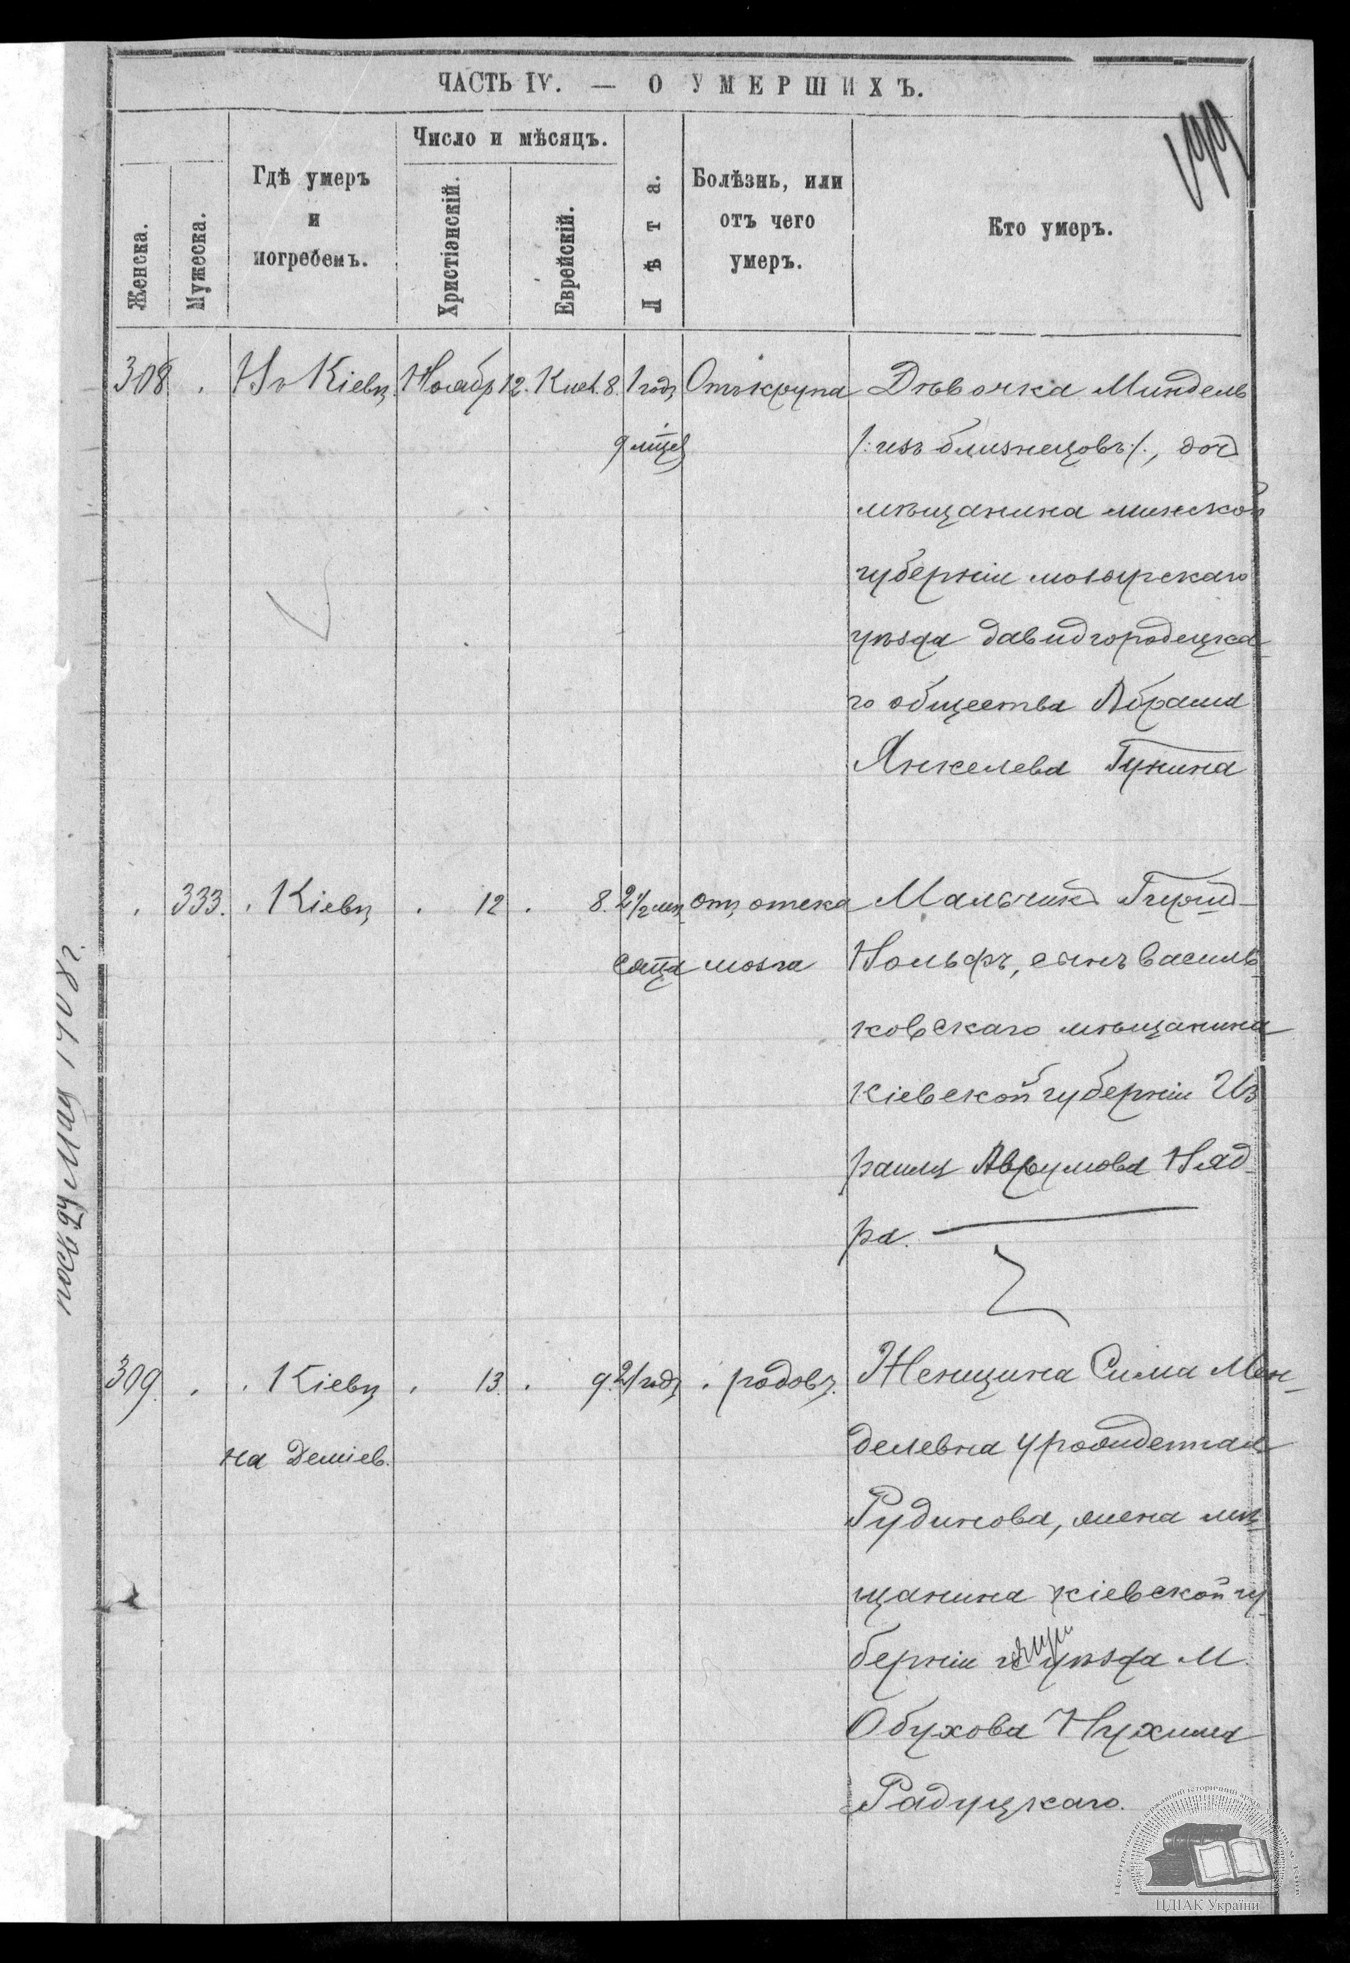 ЧАСТЬ IV. — О УМЕРШИХЪ.
199
Женска.
Мужеска.
Гдѣ умеръ
и
погребенъ.
Число и мѣсяцъ.
Христіанскій.
Еврейскій.
Лѣта.
Болѣзнь, или
отъ чего
умеръ.
Кто умеръ.
308 . Въ Кіевѣ Ноябр 12. Кисл. 8. 1 годъ Отъ крупа Дѣвочка Миндель
9 мѣсц /:изъ близнецовъ:/, доч
мѣщанина минской
губерніи мозырскаго
уѣзда давидгородецка
го общества Абрама
Янкелева Гунина
. 333. . Кіевѣ . 12 . 8. 2½ мѣ отъ отека Мальчикъ Гирш-
сяца мозга Вольфъ, сынъ василь
ковскаго мѣщанина
кіевской губерніи Из
раиля Аврумова Няд
ра.
309. . . Кіевѣ . 13. . 9. 21 годъ . родовъ. Женщина Сима Мен-
на Деміев. делевна урожденная
Рудинова, жена мѣ
щанина кіевской гу
берніи и уѣзда М.
Обухова Нухима
Радуцкаго.
1908 г.
ЦДІАК України